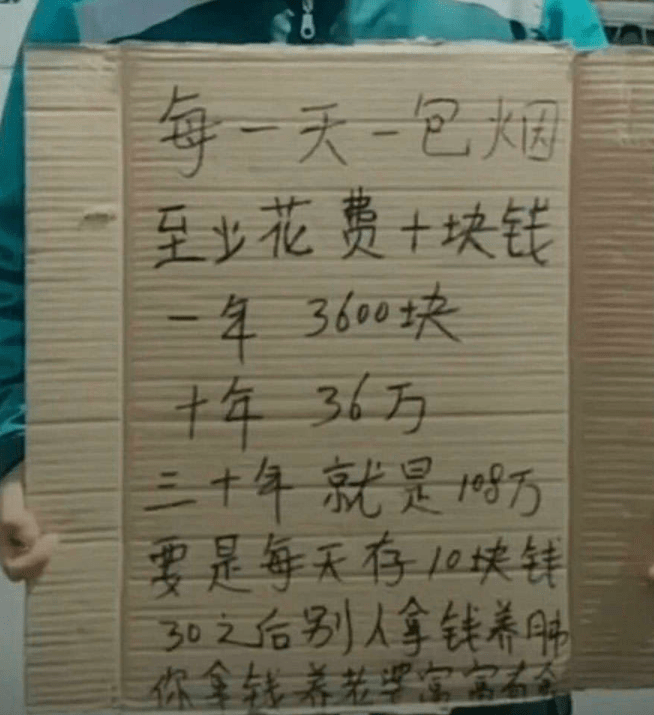 每一天一包烟
至少花费十块钱
一年 3600块
十年 36万
三十年 就是 108万
要是每天存10块钱
30之后别人拿钱养肺
你拿钱养老